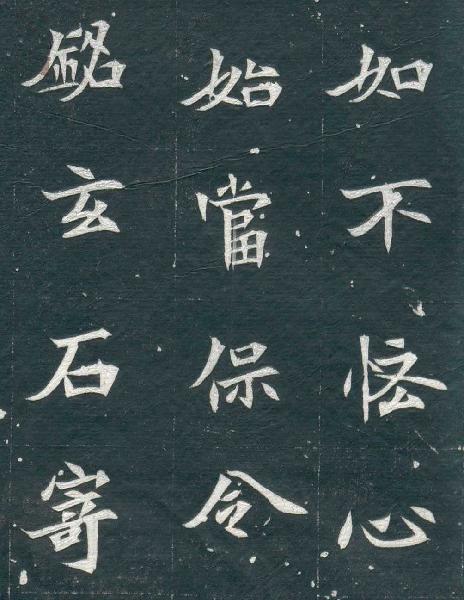 如不怪心
始當保令
銘玄石寄